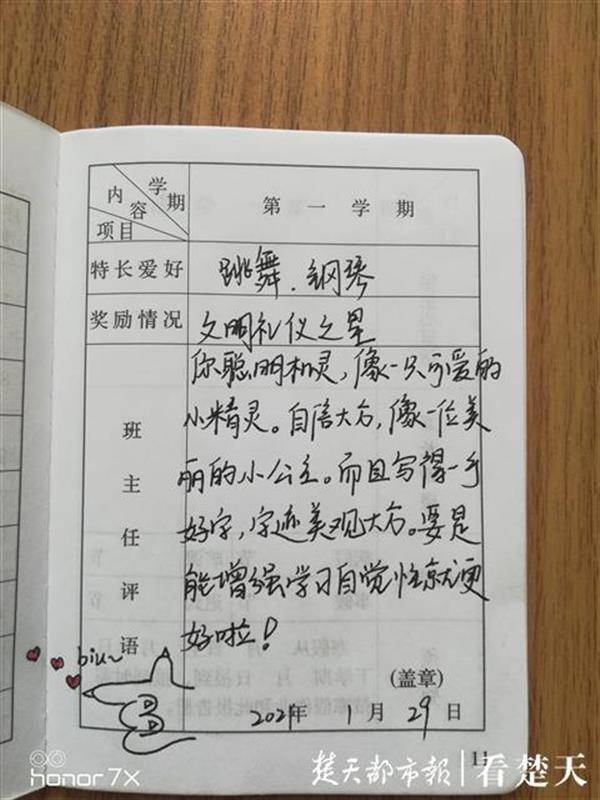 内容 学期
项目
第一学期
特长爱好
跳舞.钢琴
奖励情况
文明礼仪之星
班主任评语
你聪明机灵,像一只可爱的
小精灵。自信大方,像一位美
丽的小公主。而且写得一手
好字,字迹美观大方。要是
能增强学习自觉性就更
好啦!
biu~
(盖章)
2021年 1月 29日
11
honor 7X
楚天都市报 看楚天